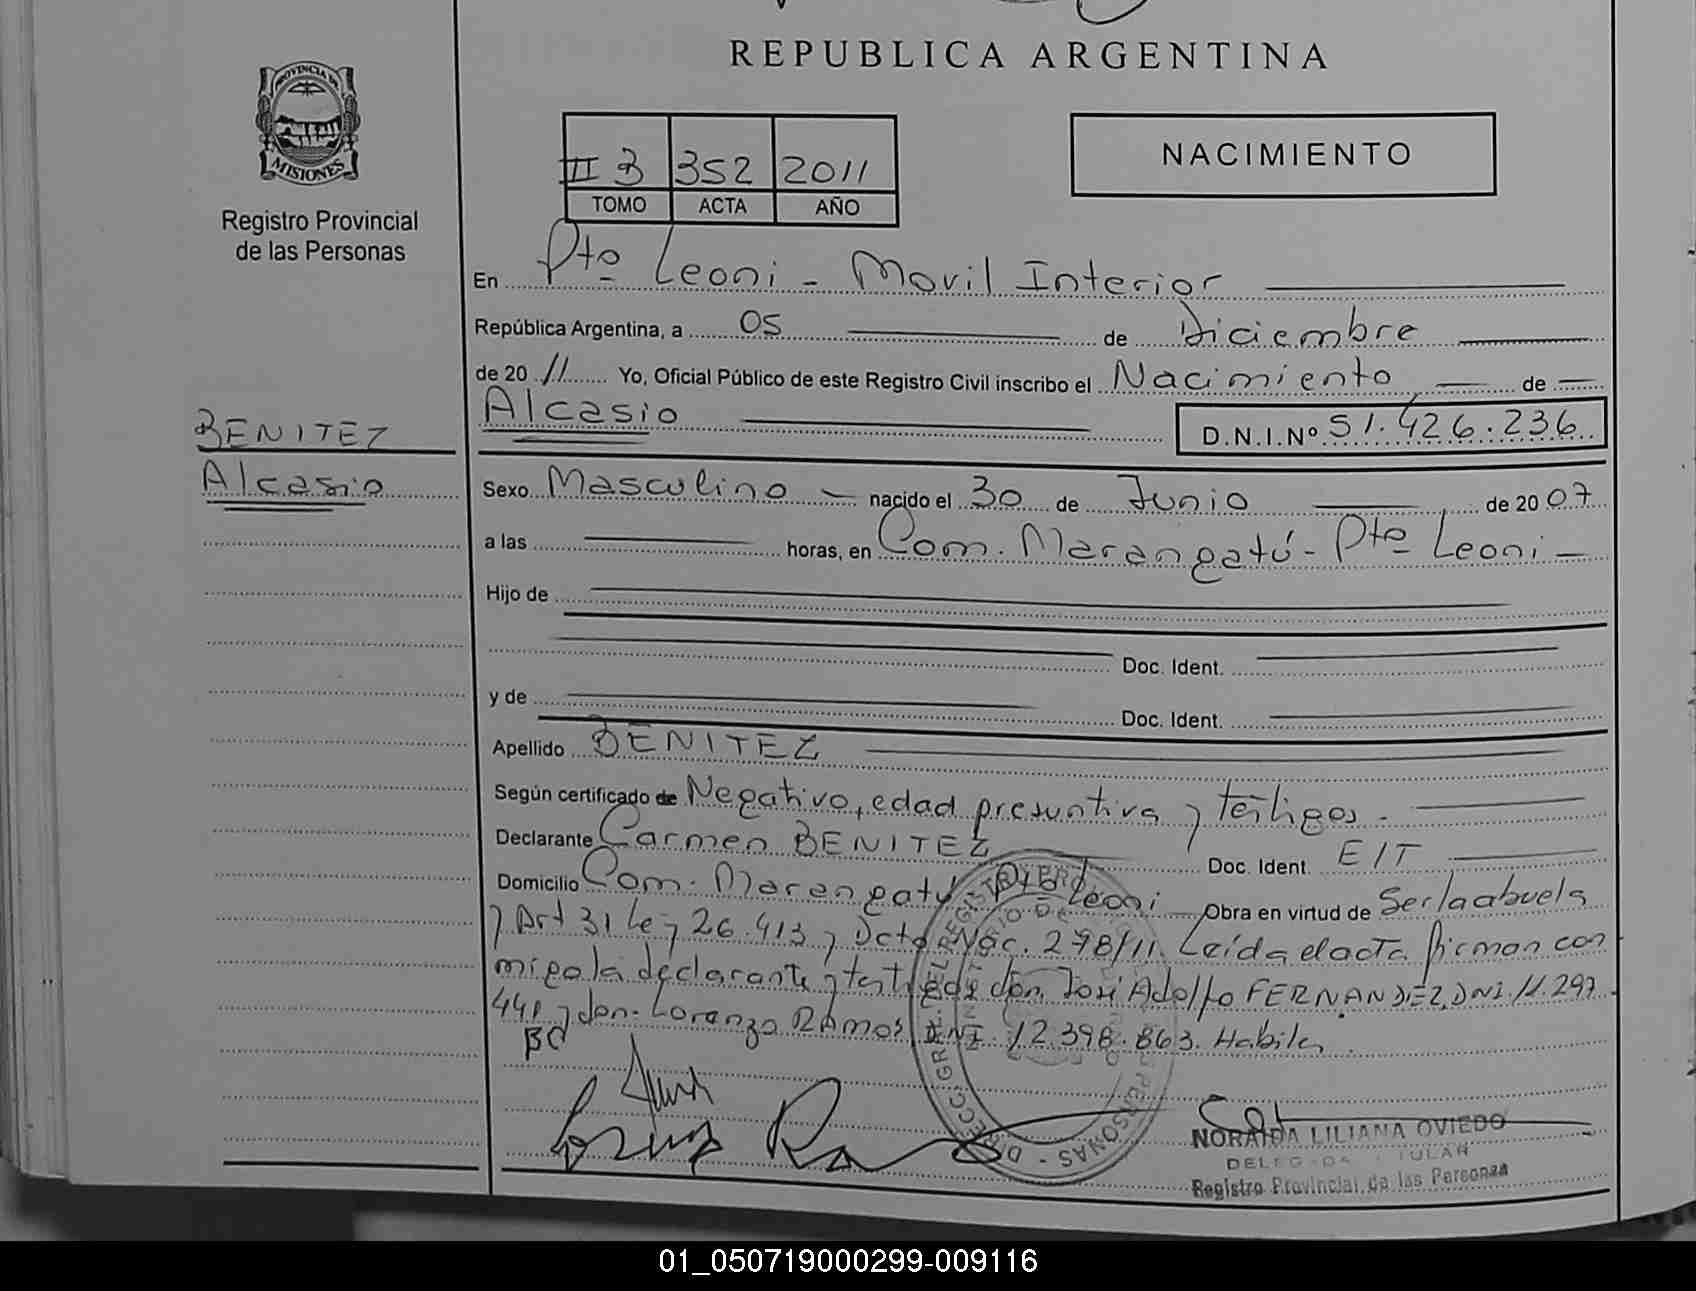 REPUBLICA ARGENTINA
PROVINCIA DE
MISIONES
Registro Provincial
de las Personas
NACIMIENTO
II 3 352 2011
TOMO ACTA AÑO
En Pto Leoni - Movil Interior
República Argentina, a 05 de Diciembre
de 20 11 Yo, Oficial Público de este Registro Civil inscribo el Nacimiento de
Alcasio D.N.I.Nº 51.426.236
BENITEZ
Alcasio
Sexo Masculino nacido el 30 de Junio de 20 07
a las horas, en Com. Marangatú - Pto Leoni
Hijo de
Doc. Ident.
y de Doc. Ident.
Apellido BENITEZ
Según certificado de Negativo, edad presuntiva y testigos.
Declarante Carmen BENITEZ Doc. Ident. E/T
Domicilio Com. Marangatú - Pto Leoni Obra en virtud de Ser la abuela
y Art 31 Ley 26.413 y Dcto Nac. 278/11. Leída el acta firman con
migo la declarante y testigos don José Adolfo FERNANDEZ, DNI. 11.297.
441 y don Lorenzo RAMOS, DNI 12.398.863. Habiles.
BC
NORAIDA LILIANA OVIEDO
Registro Provincial de las Personas
01_050719000299-009116